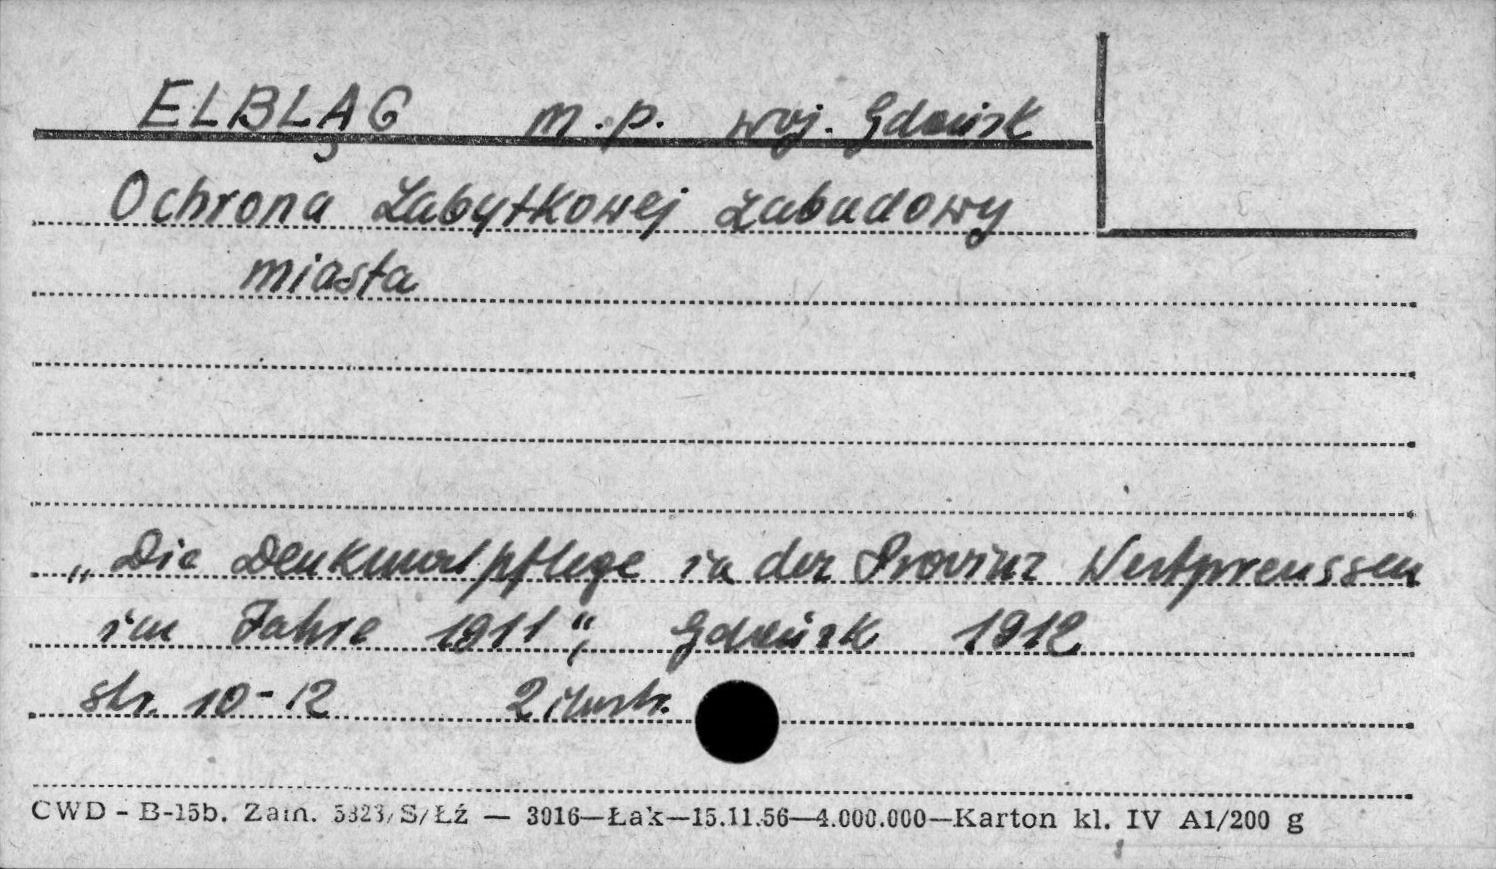 ELBLĄG m.p. woj. Gdańsk
Ochrona zabytkowej zabudowy
miasta
„Die Denkmalpflege in der Provinz Westpreussen
im Jahre 1911", Gdańsk 1912
str. 10-12 2 ilustr.
CWD - B-15b. Zam. 5323/S/Łź — 3016—Łak—15.11.56—4.000.000—Karton kl. IV A1/200 g